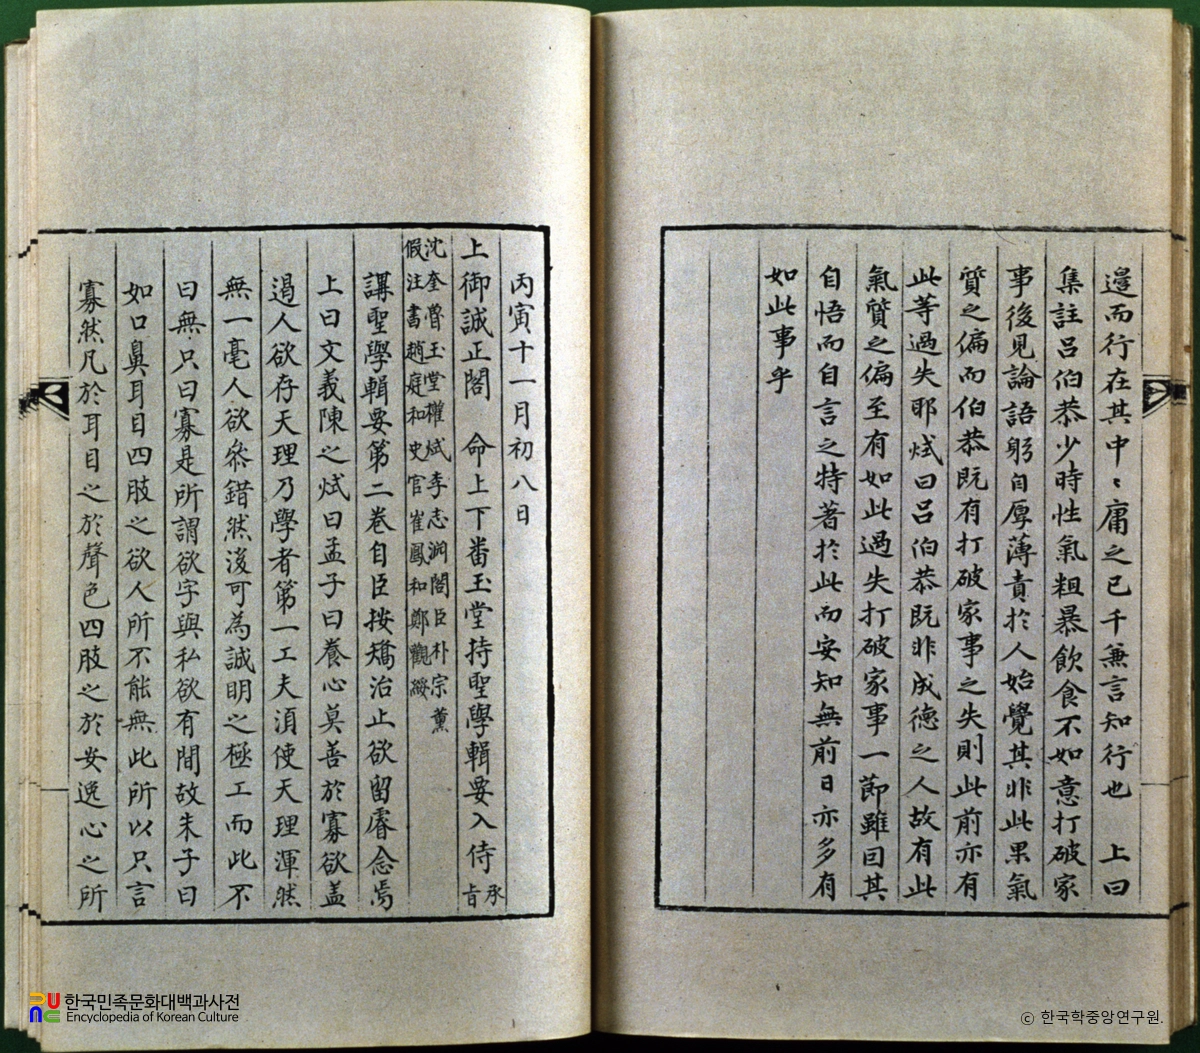 邊而行在其中〻庸之已千兼言知行也　上曰
集註呂伯恭少時性氣粗暴飮食不如意打破家
事後見論語躬自厚薄責於人始覺其非此果氣
質之偏而伯恭旣有打破家事之失則此前亦有
此等過失耶烒曰呂伯恭旣非成德之人故有此
氣質之偏至有如此過失打破家事一節雖因其
自悟而自言之特著於此而安知無前日亦多有
如此事乎
丙寅十一月初八日
上御誠正閣　命上下番玉堂持聖學輯要入侍
承
旨
沈奎魯玉堂權烒李志淵閣臣朴宗薰
假注書趙庭和史官崔鳳和鄭觀綏
講聖學輯要第二卷自臣按矯治止欲留睿念焉
上曰文義陳之烒曰孟子曰養心莫善於寡欲盖
遏人欲存天理乃學者第一工夫湏使天理渾然
無一毫人欲叅錯然後可為誠明之極工而此不
曰無只曰寡是所謂欲字與私欲有間故朱子曰
如口鼻耳目四肢之欲人所不能無此所以只言
寡然凡於耳目之於聲色四肢之於安逸心之所
한국민족문화대백과사전
Encyclopedia of Korean Culture
ⓒ 한국학중앙연구원.